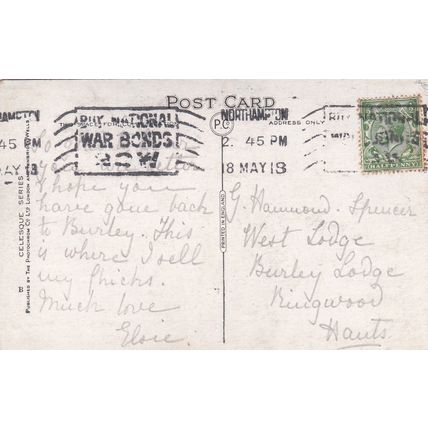 POST CARD
THIS SPACE
ADDRESS ONLY
P.C.
BUY NATIONAL
WAR BONDS
NOW
NORTHAMPTON
2. 45 PM
18 MAY 18
AMPTON
45 PM
MAY 18
BUY NATIONAL
WAR BONDS
HALFPENNY
I hope you
have gone back
to Burley. This
is where I sell
my chicks.
Much love
Elsie.
G. Hammond-Spencer
West Lodge
Burley Lodge
Ringwood
Hants
CELESQUE SERIES
PUBLISHED BY THE PHOTOCHROM CO LTD LONDON AND TUNBRIDGE WELLS
PRINTED IN ENGLAND